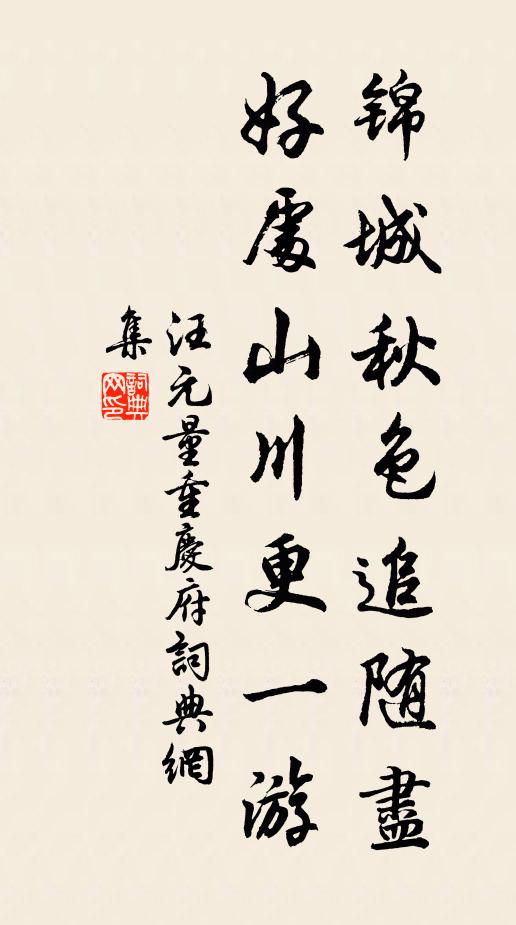 锦城秋色追随盡
好處山川更一游
汪元量重慶府詞典網
集
詞典
网印